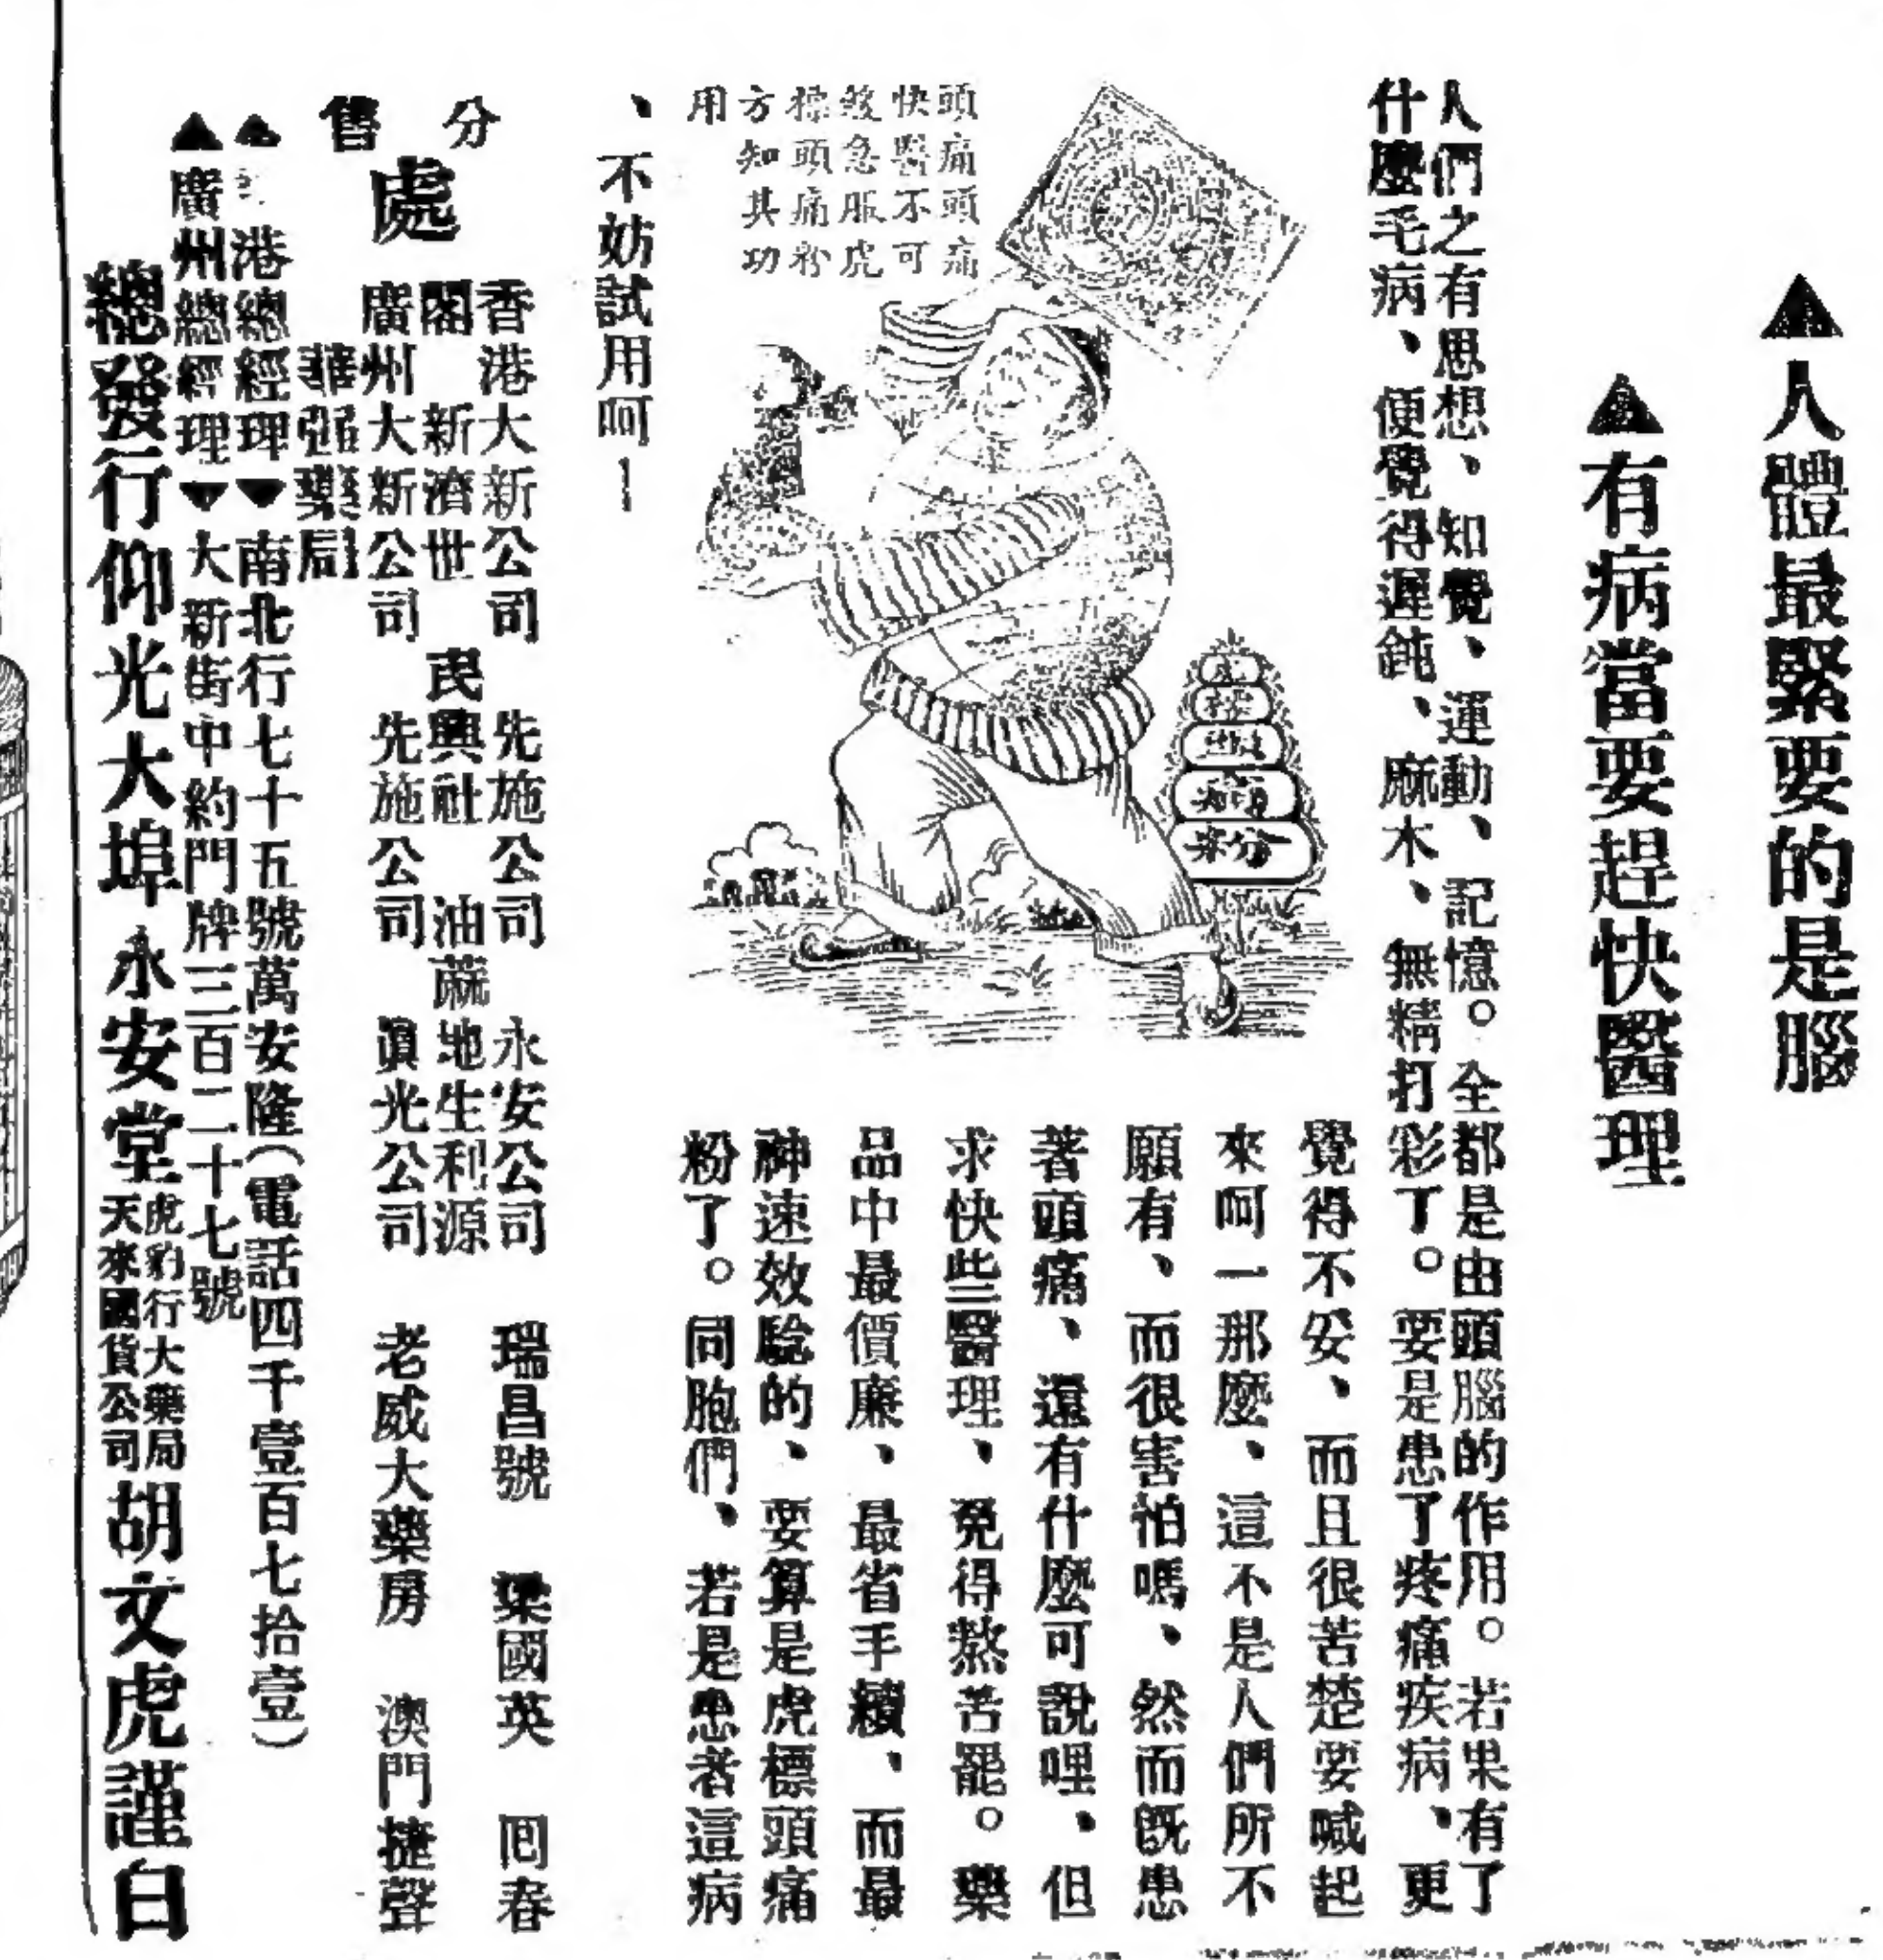 ▲人體最緊要的是腦
▲有病當要趕快醫理
人們之有思想、知覺、運動、記憶。全都是由頭腦的作用。若果有了
什麼毛病、便覺得遲鈍、麻木、無精打彩了。要是患了疼痛疾病、更
覺得不妥、而且很苦楚要喊起
來呵一那麼、這不是人們所不
願有、而很害怕嗎、然而既患
著頭痛、還有什麼可說哩、但
求快些醫理、免得熬苦罷。藥
品中最價廉、最省手續、而最
神速效騐的、要算是虎標頭痛
粉了。同胞們、若是患者這病
、不妨試用呵一
頭痛頭痛
快醫不可
緩急服虎
標頭痛粉
方知其功
用
虎
標
頭痛
粉
分售處
香港大新公司 先施公司 永安公司 瑞昌號 梁國英 囘春
閣 新濟世 民興社 油蔴地生利源
廣州大新公司 先施公司 眞光公司 老威大藥房 澳門捷聲
華强藥局
▲港總經理▼南北行七十五號萬安隆(電話四千壹百七拾壹)
▲廣州總經理▼大新街中約門牌三百二十七號
總發行仰光大埠永安堂虎豹行大藥局天來國貨公司胡文虎謹白